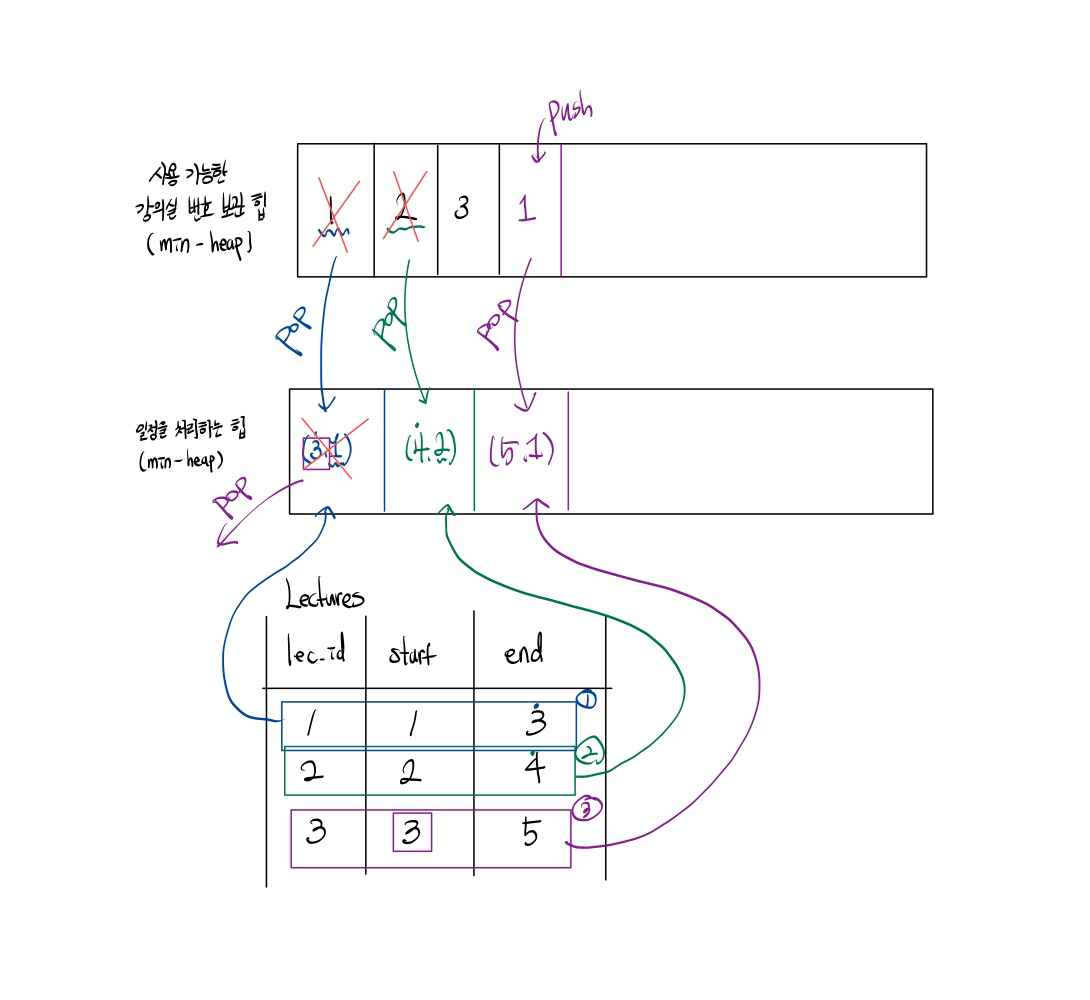 push
사용 가능한
강의실 번호 보관 힙
(min-heap)
1 2 3 1
pop pop pop
일정을 처리하는 힙
(min-heap)
(3.1) (4.2) (5.1)
pop
Lectures
lec_id start end
1 1 3 ①
2 2 4 ②
3 3 5 ③